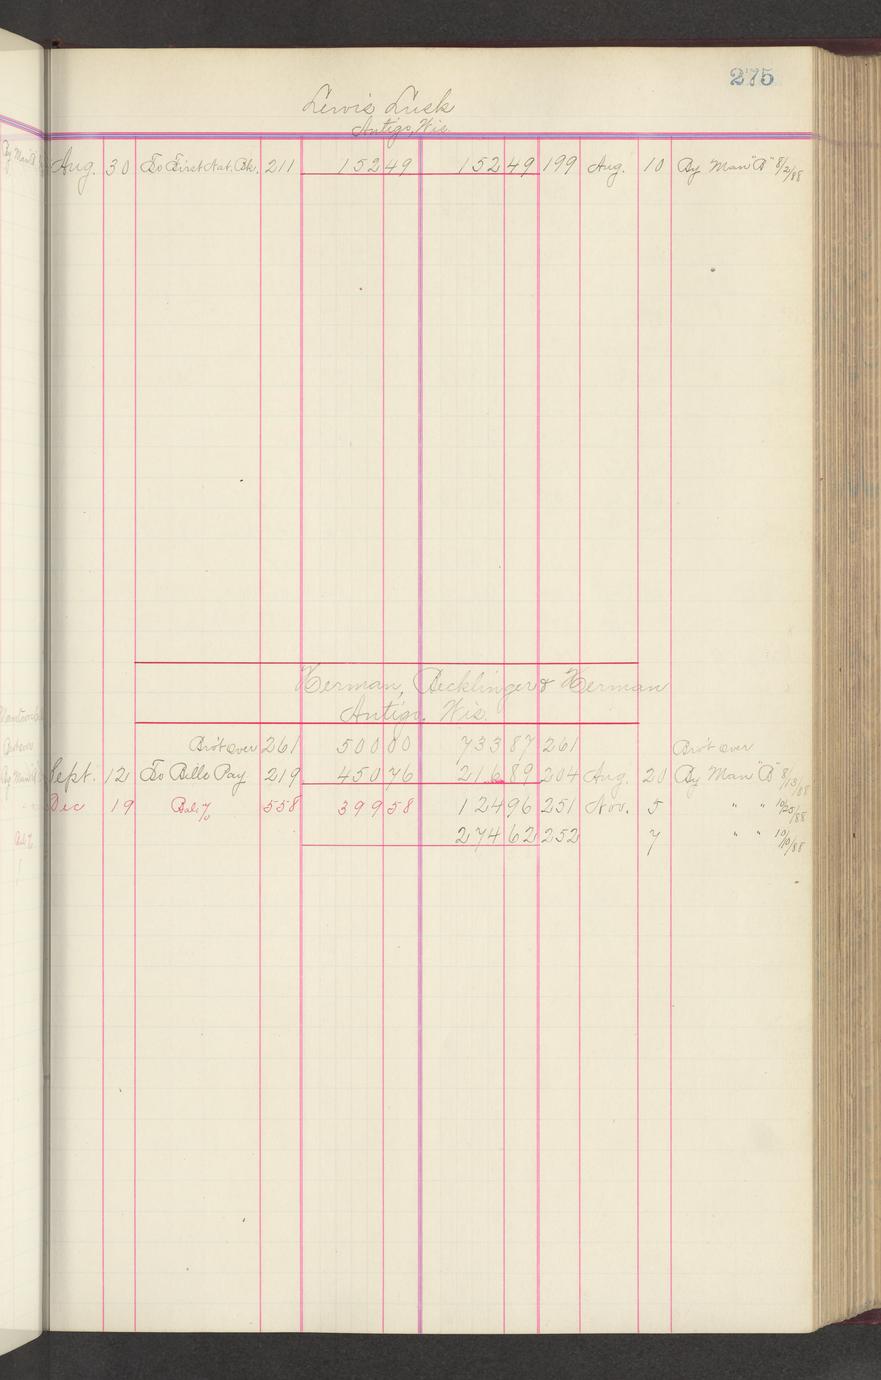 275
Lewis Lusk
Antigo, Wis.
Aug. 30 To First Nat. Bk. 211 152 49 152 49 199 Aug. 10 By Man "B" 8/2/88
Herman, Becklinger & Herman
Antigo. Wis.
Bro't over 261 500 00 733 87 261 Bro't over
Sept. 12 To Bills Pay 219 450 76 216 89 204 Aug. 20 By Man "B" 8/13/88
Dec 19 Bal % 558 399 58 124 96 251 Nov. 5 " " 10/25/88
274 62 252 7 " " 10/10/88